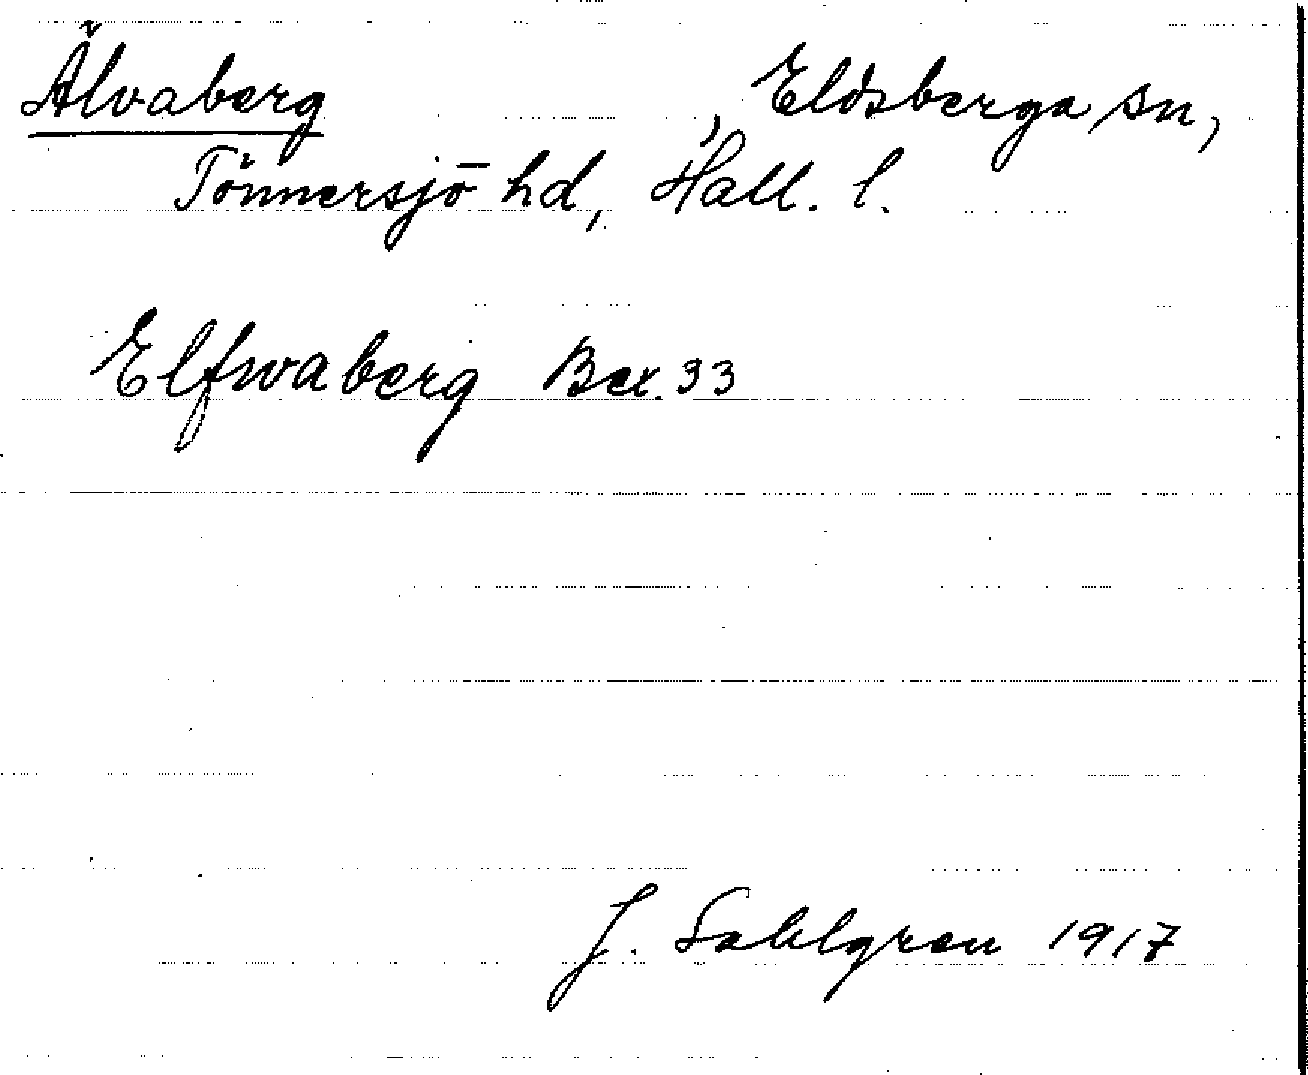 Älvaberg , Eldsberga sn,
Tönnersjö hd, Hall. l.
Elfwaberg Bex. 33
J. Sahlgren 1917